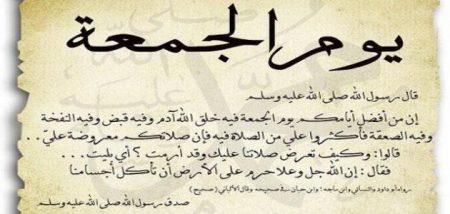 يوم الجمعة
قال رسول الله صلى الله عليه وسلم
إن من أفضل أيامكم يوم الجمعة فيه خلق الله آدم وفيه قبض وفيه النفخة
وفيه الصعقة فأكثروا علي من الصلاة فيه فإن صلاتكم معروضة علي..
قالوا: وكيف تعرض صلاتنا عليك وقد أرمت؟ أي بليت....
فقال: إن الله جل وعلا حرم على الأرض أن تأكل أجسامنا
رواه أبو داود والنسائي وابن ماجه؛ وابن حبان في صحيحه وقال الألباني (صحيح)
صدق رسول الله صلى الله عليه وسلم